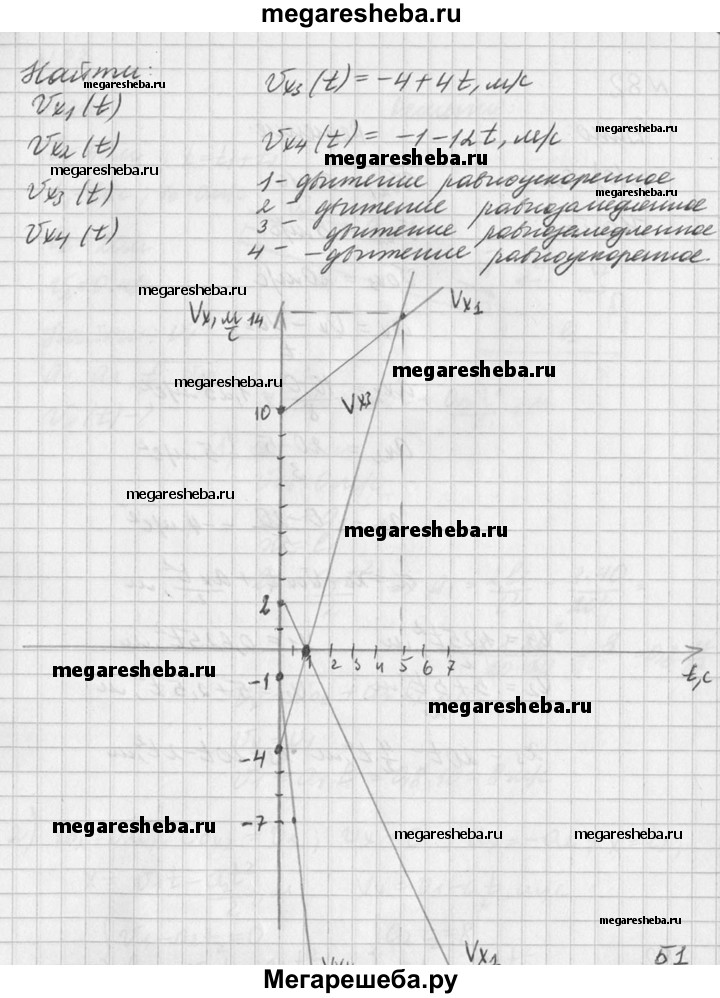 megaresheba.ru
Найти:
Vx1(t)
Vx2(t)
Vx3(t)
Vx4(t)
Vx3(t) = -4+4t, м/с
Vx4(t) = -1-12t, м/с
1- движение равноускоренное
2 - движение равнозамедленное
3 - движение равнозамедленное
4 - - движение равноускоренное.
megaresheba.ru
megaresheba.ru
megaresheba.ru
megaresheba.ru
megaresheba.ru
megaresheba.ru
Vx, м/с 14
Vx1
megaresheba.ru
megaresheba.ru
Vx3
10
megaresheba.ru
megaresheba.ru
2
1 2 3 4 5 6 7
t,с
megaresheba.ru
-1
megaresheba.ru
-4
-7
megaresheba.ru
megaresheba.ru
megaresheba.ru
megaresheba.ru
Vx1
51
Мегарешеба.ру